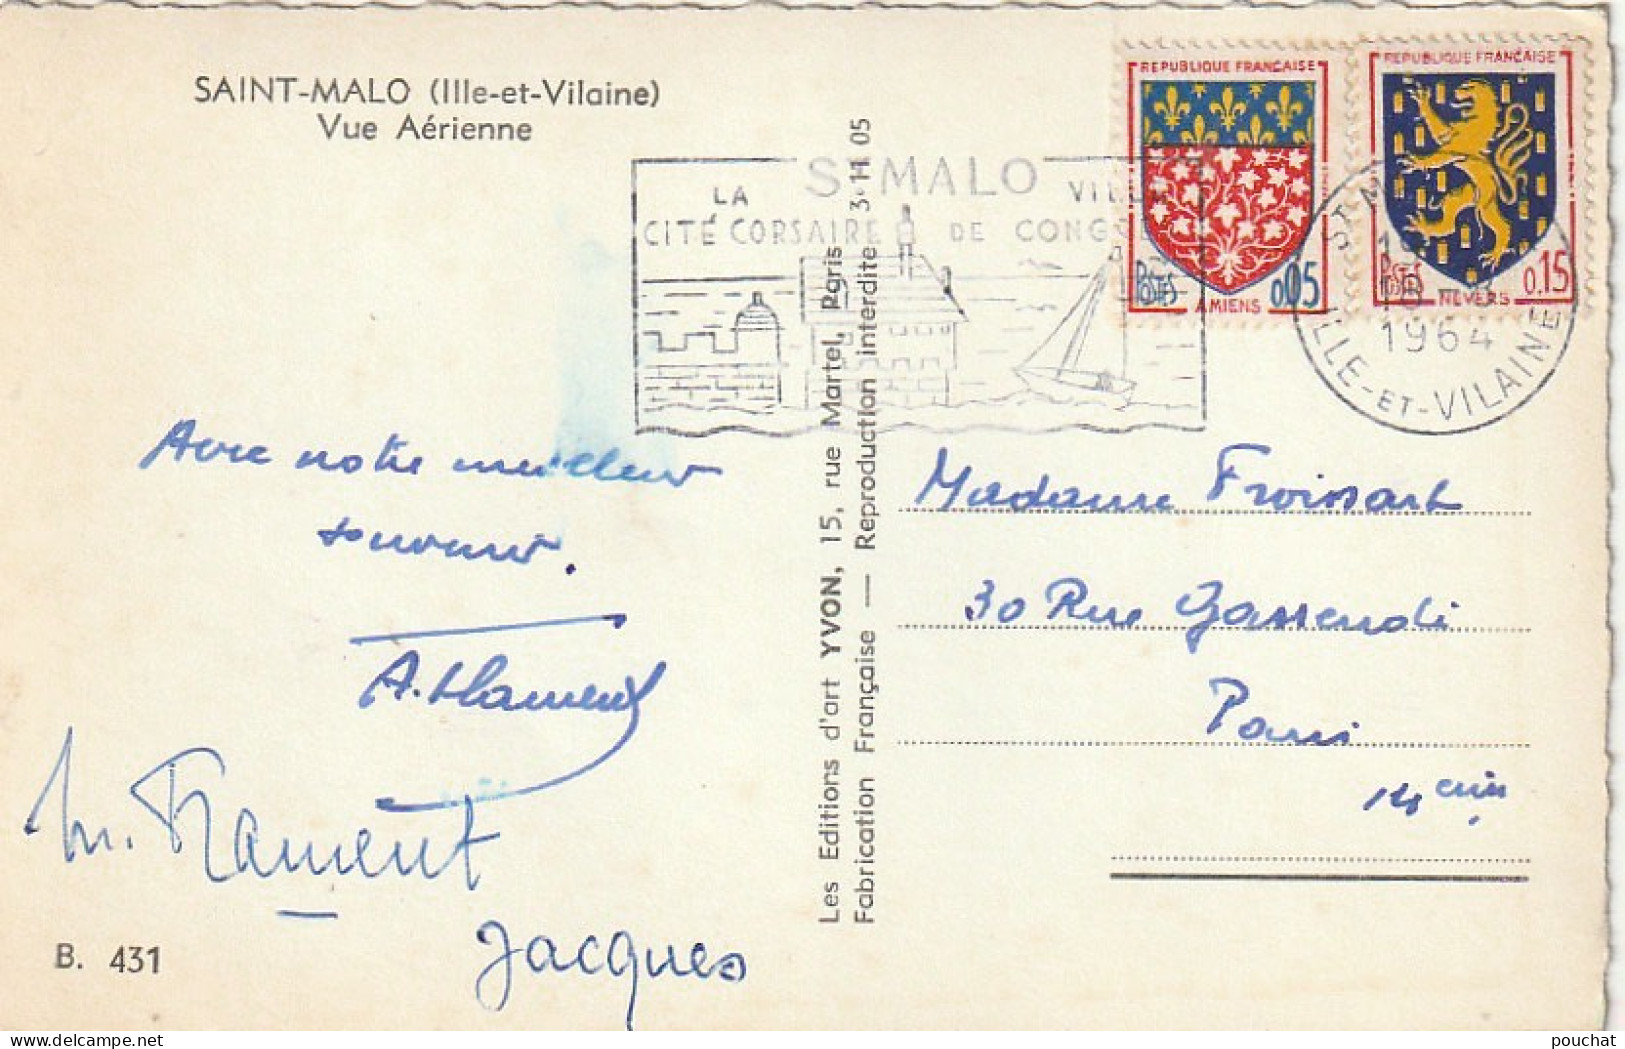 SAINT-MALO (Ille-et-Vilaine)
Vue Aérienne
LA
CITÉ CORSAIRE
ST MALO
DE
REPUBLIQUE FRANÇAISE
POSTES
0,05
AMIENS
REPUBLIQUE FRANÇAISE
POSTES
0.15
NEVERS
ST M
1964
ILLE-ET-VILAINE
Avec notre meilleur
souvenir.
A. Flament
M. Flament
Jacques
B. 431
Les Editions d'art YVON, 15, rue Martel, Paris
Fabrication Française — Reproduction interdite 3. 11 05
Madame Froissart
30 Rue Gassendi
Paris
14 eme
pouchat